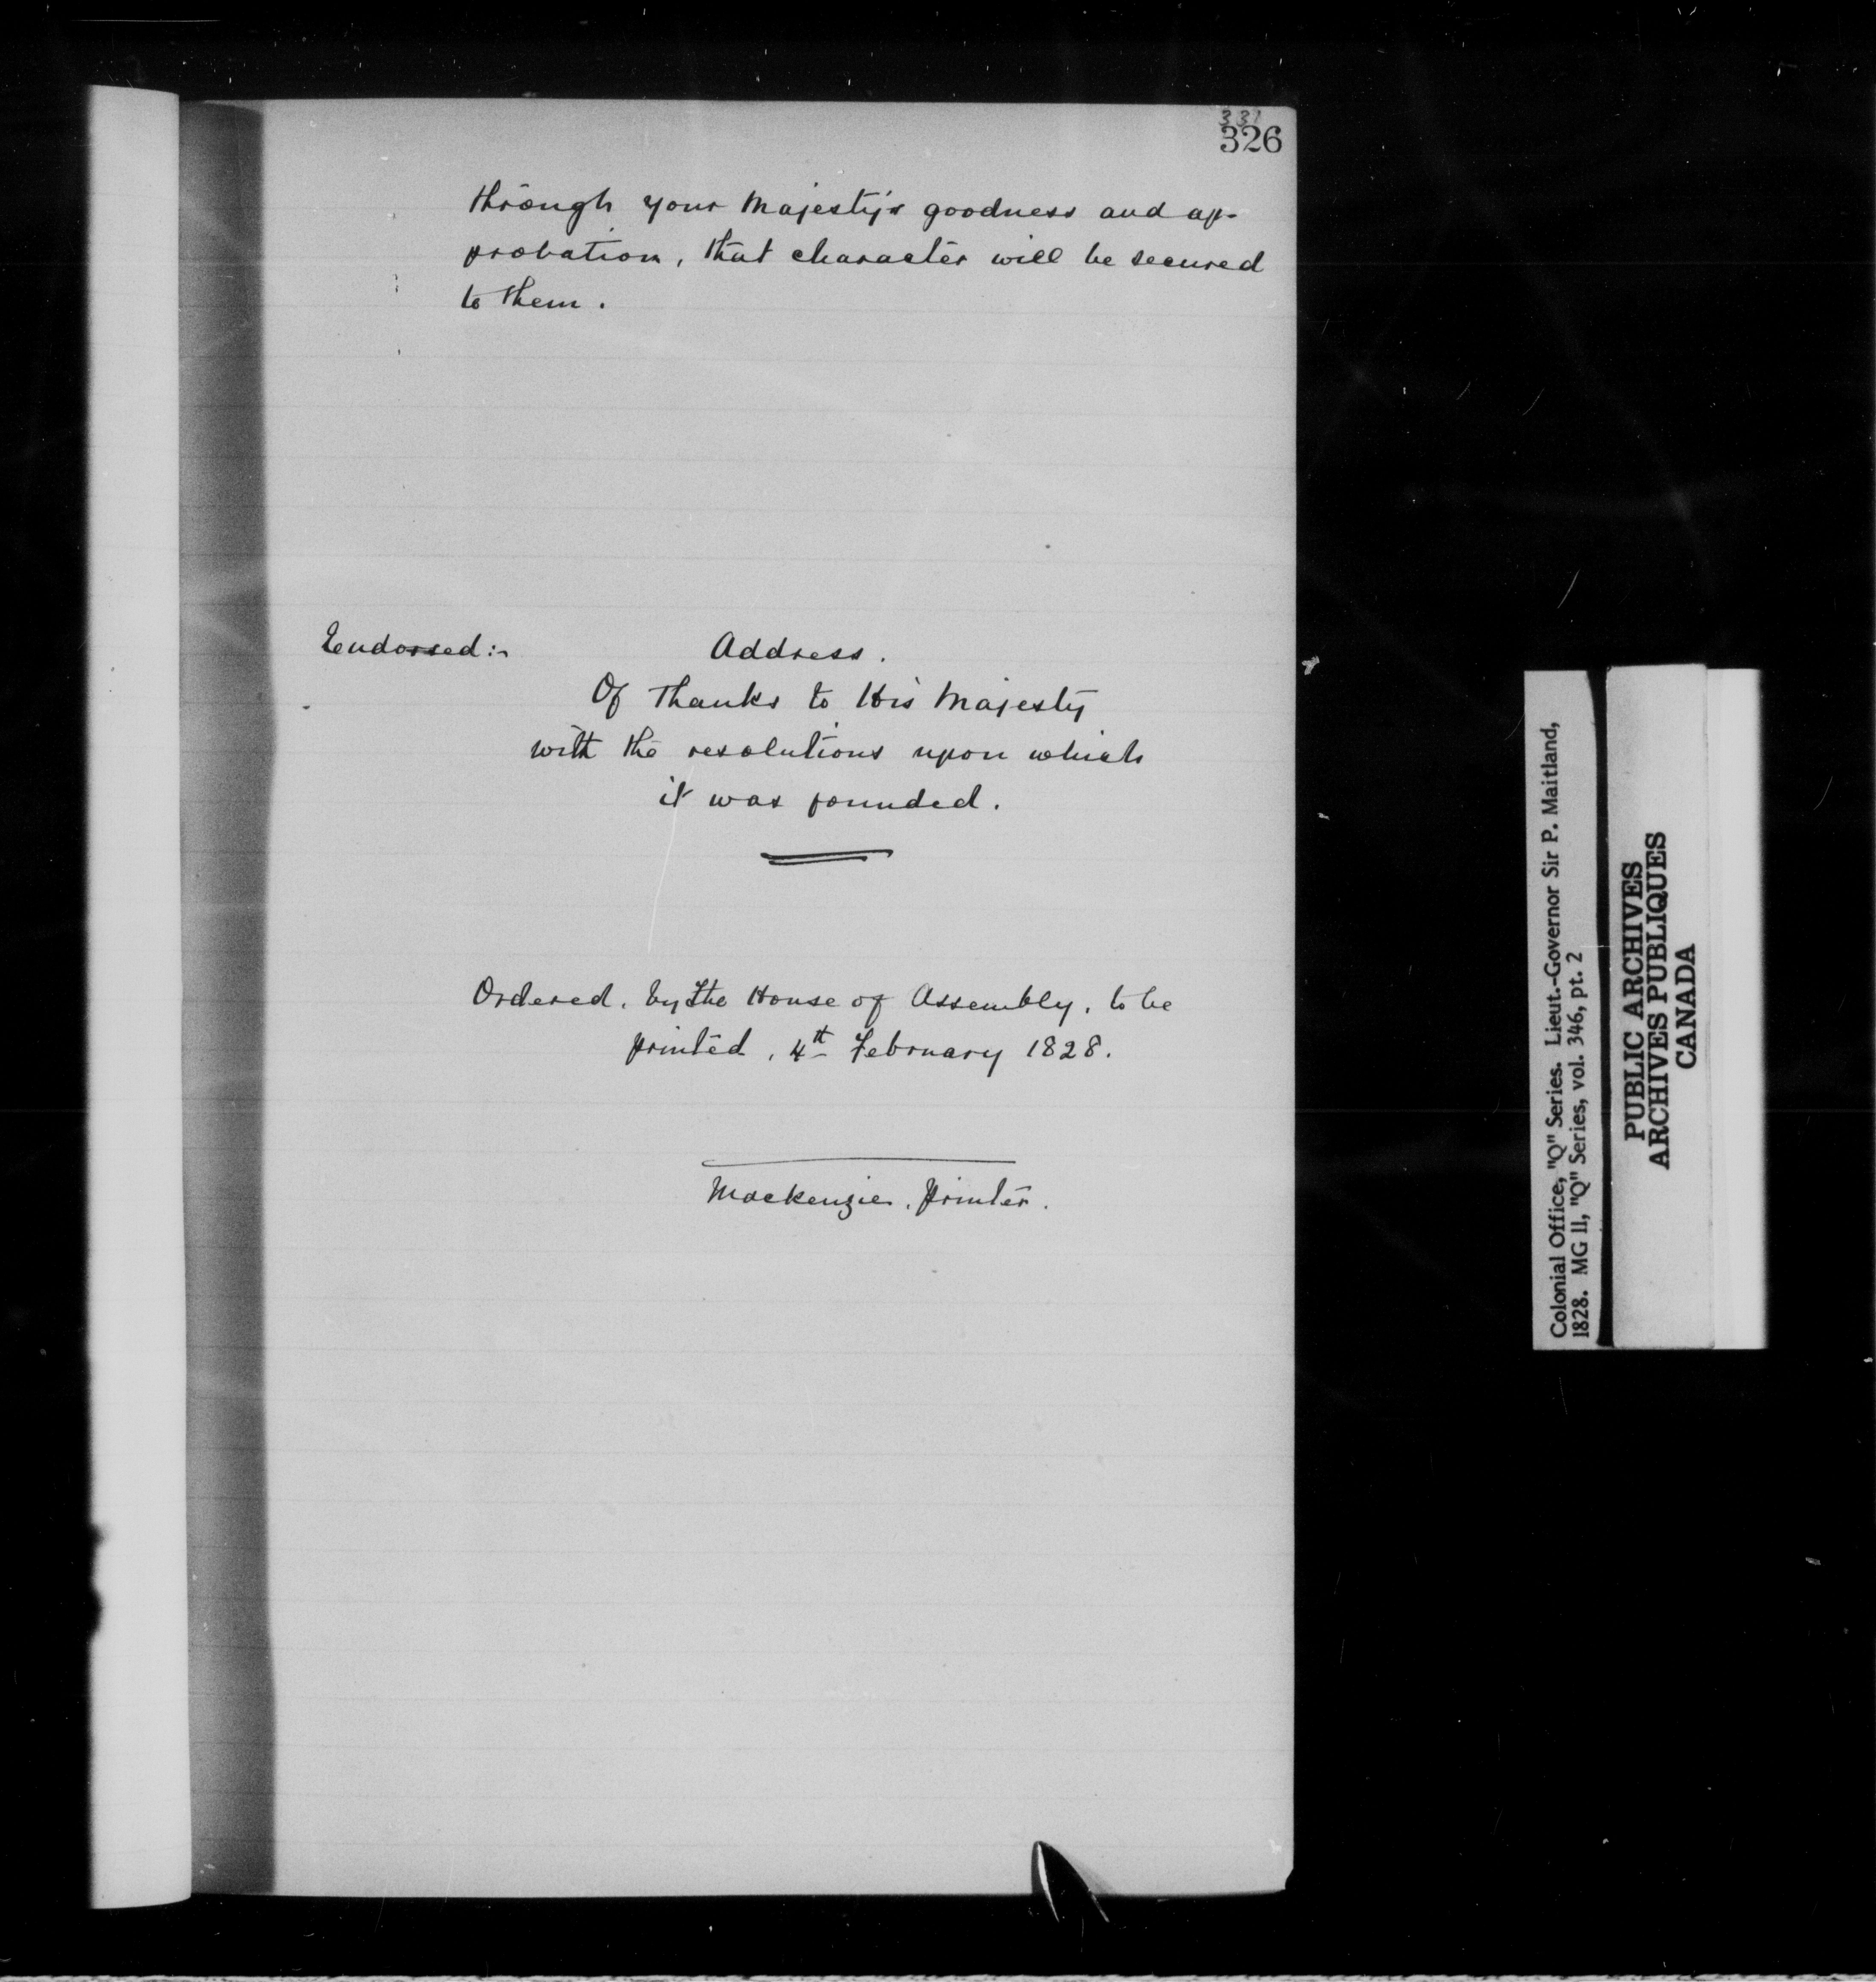 331
326
through your Majesty's goodness and ap-
probation, that character will be secured
to them.
Endorsed:-
Address.
Of Thanks to His Majesty
with the resolutions upon which
it was founded.
Ordered, by the House of Assembly, to be
printed, 4th February 1828.
Mackenzie, Printer.
Colonial Office, "Q" Series. Lieut.-Governor Sir P. Maitland,
1828. MG 11, "Q" Series, vol. 346, pt. 2
PUBLIC ARCHIVES
ARCHIVES PUBLIQUES
CANADA